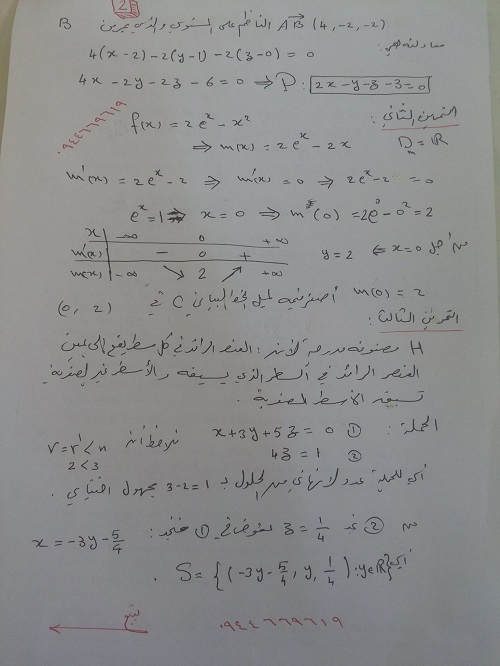 2
B الناظم على المستوي والذي يمر من AB (4, -2, -2)
معادلته هي:
4(x-2) -2(y-1) -2(z-0) = 0
4x - 2y - 2z - 6 = 0 ⇒ P: 2x-y-z-3=0
التمرين الثاني:
٠٩٤٤٦٦٩٦١٩
f(x) = 2e^x - x²
⇒ m(x) = 2e^x - 2x D_m = ℝ
m'(x) = 2e^x - 2 ⇒ m'(x) = 0 ⇒ 2e^x - 2 = 0
e^x = 1 ⇒ x = 0 ⇒ m(0) = 2e^0 - 0² = 2
x -∞ 0 +∞
m'(x) - 0 + y = 2 ⇐ x = 0 من أجل
m(x) -∞ ↘ 2 ↗ +∞
m(0) = 2 أصغر قيمة لميل الخط البياني C في (0, 2)
التمرين الثالث:
H مصفوفة مدرجة لأنه: العنصر الرائد في كل سطر يقع إلى يمين
العنصر الرائد في السطر الذي يسبقه والأسطر غير الصفرية
تسبق الأسطر الصفرية.
الجملة: x+3y+5z = 0 ①
4z = 1 ② نلاحظ أنه r = r' < n
2 < 3
أي للجملة عدد لا نهائي من الحلول بـ 3-2=1 مجهول اختياري.
من ② نجد z = 1/4 نعوض في ① فنجد: x = -3y - 5/4
أي S = {(-3y - 5/4, y, 1/4): y∈R}.
يتبع
٠٩٤٤٦٦٩٦١٩